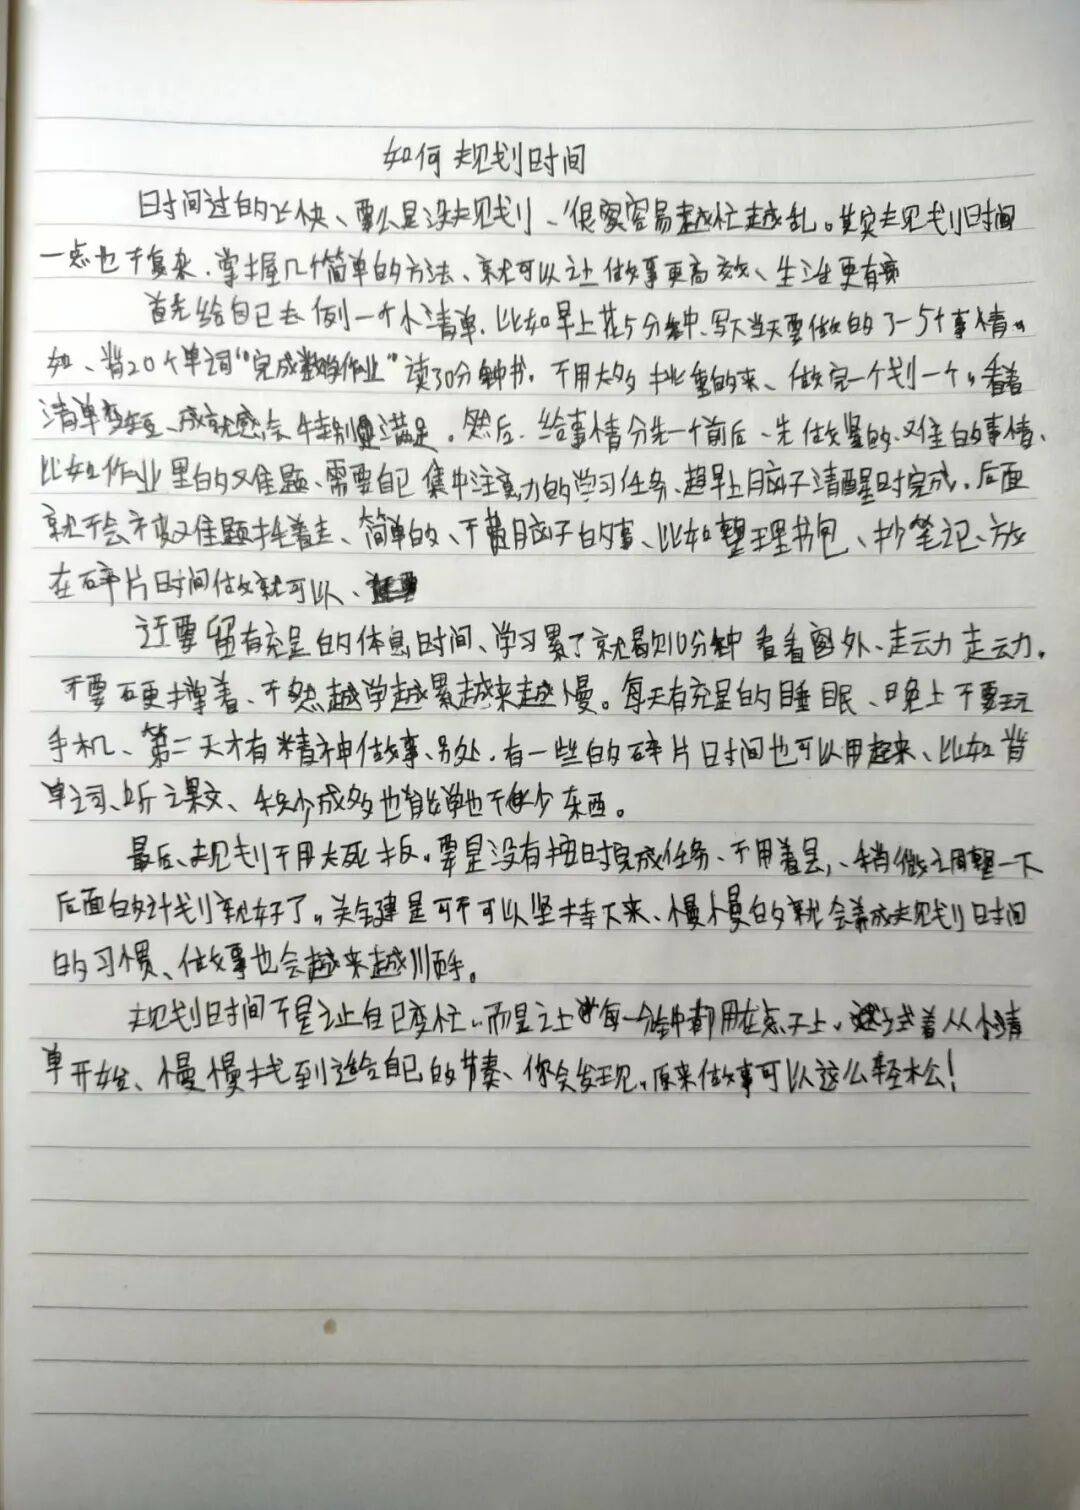 如何规划时间
时间过的飞快、要么是没规划、很容容易越忙越乱。其实规划时间
一点也不复杂.掌握几个简单的方法、就可以让做事更高效、生活更有
首先给自己去例一个小清单.比如早上花5分钟、写下当天要做的3-5个事情。
如、背20个单词“完成数学作业”读30分钟书.不用太多挑重的来、做完一个划一个,看着
清单变短、成就感会特别是满足。然后.给事情分先一个前后、先做紧的.难的事情、
比如作业里的难题、需要自己集中注意力的学习任务、趁早上脑子清醒时完成.后面
就不会被难题拖着走、简单的、不费脑子的事、比如整理书包、抄笔记、放
在碎片时间做就可以、
还要留有充足的休息时间、学习累了就歇10分钟看看窗外、走动走动.
不要硬撑着、不然越学越累越来越慢。每天有充足的睡眠、晚上不要玩
手机、第二天才有精神做事、另处.有一些的碎片时间也可以用起来、比如背
单词、听课文、积少成多也能学也不少东西。
最后、规划不用太死板。要是没有按时完成任务、不用着急,、稍微调整一下
后面的计划就好了。关键是可不可以坚持下来、慢慢的就会养成规划时间
的习惯、做事也会越来越顺手。
规划时间不是让自己变忙.而是让每一分钟都用在点子上.试着从小清
单开始、慢慢找到适合自己的节奏、你会发现.原来做事可以这么轻松!